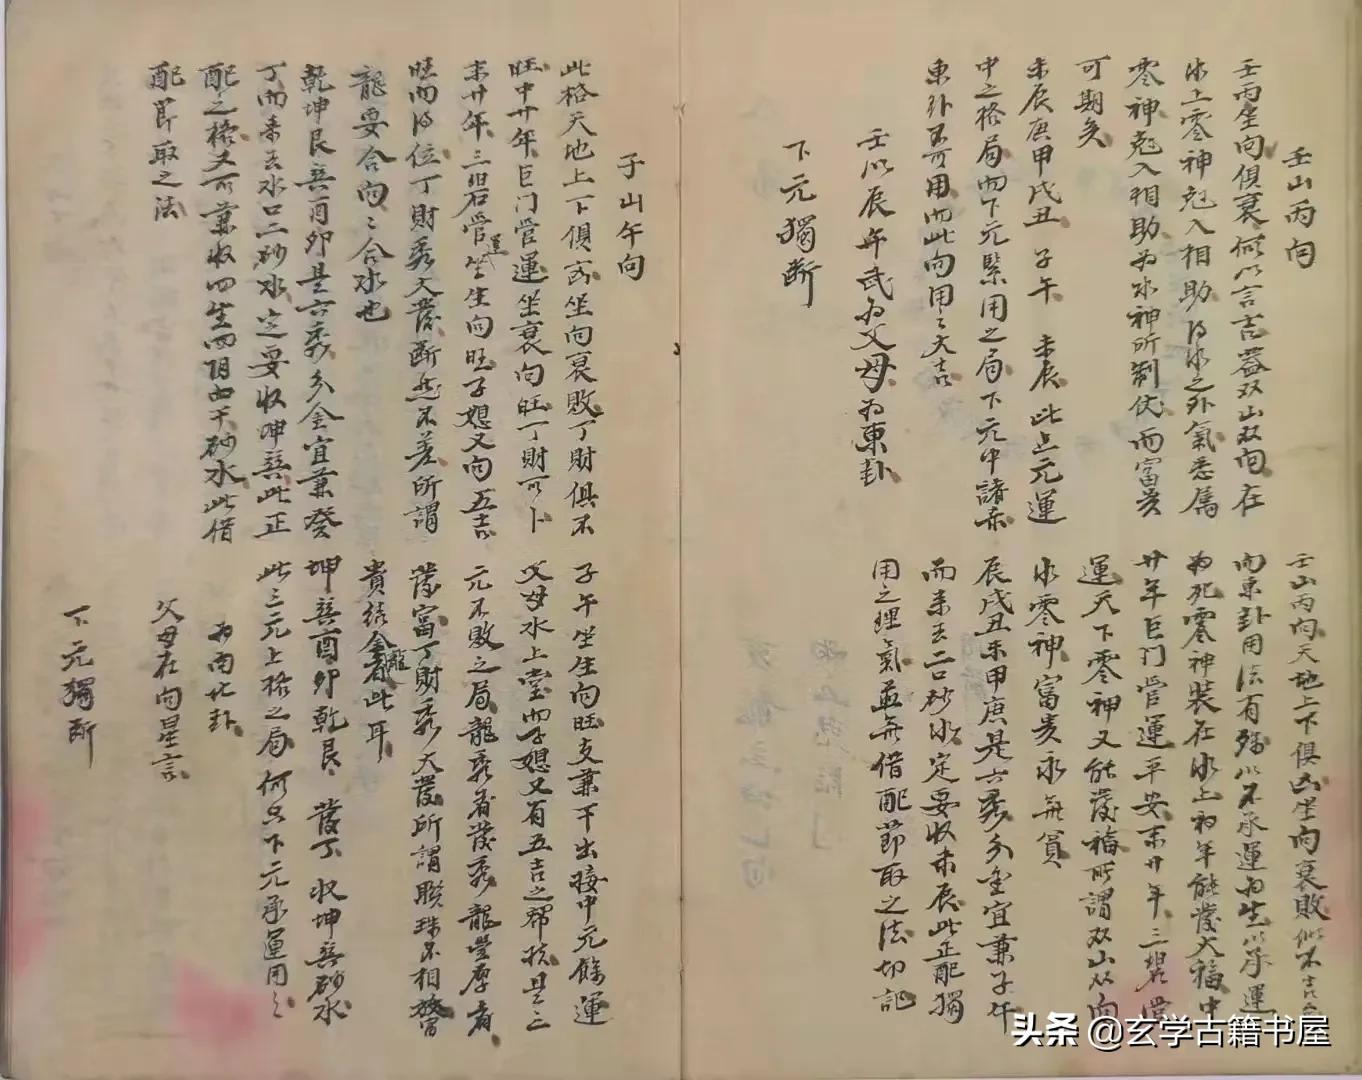 壬山丙向
壬丙坐向俱衰何以言吉蓋双山双向在
水上零神兙入相助得水之外氣悉属
零神兙入相助为水神所制伏而富贵
可期矣
未辰庚甲戌丑 子午 未辰 此上元運
中之格局而下元緊用之局下元中諸赤
東卦不可用而此向用之大吉
壬以辰午武为父母为東卦
下元獨断
壬山丙向天地上下俱凶坐向衰敗似不吉
向東卦用法有殊以不承運为生以承運
为死零神裝在水上初年能發大福中
廿年巨门管運平安末廿年三碧當
運天下零神又能發福所謂双山双向
水零神富贵永無貧
辰戌丑未甲庚是六秀分金宜兼子午
而来去二口砂水定要收未辰此正配獨
用之理氣並無借配節取之法切記
子山午向
此格天地上下俱凶坐向衰敗丁財俱不
旺中廿年巨门管運坐衰向旺丁財可卜
末廿年三碧管運坐生向旺子媳又向五吉
旺而得位丁財秀大發断然不差所謂
龍要合向之合水也
乾坤艮巽酉卯是六秀分金宜兼癸
丁而来去水口二砂水定要收坤巽此正
配之格又可兼收四生四阴由干砂水此借
配節取之法
子午坐生向旺支兼干出接中元餘運
父母水上堂而子媳又有五吉之帮扶是三
元不敗之局龍秀者發秀龍豐厚者
發富丁財秀大發所謂聯珠不相放富
貴結全龍者此耳
坤巽酉卯乾艮 發丁 收坤巽砂水
此三元上格之局何只下元承運用之
为南北卦
父母在向星言
下元獨断
头条 @玄学古籍书屋